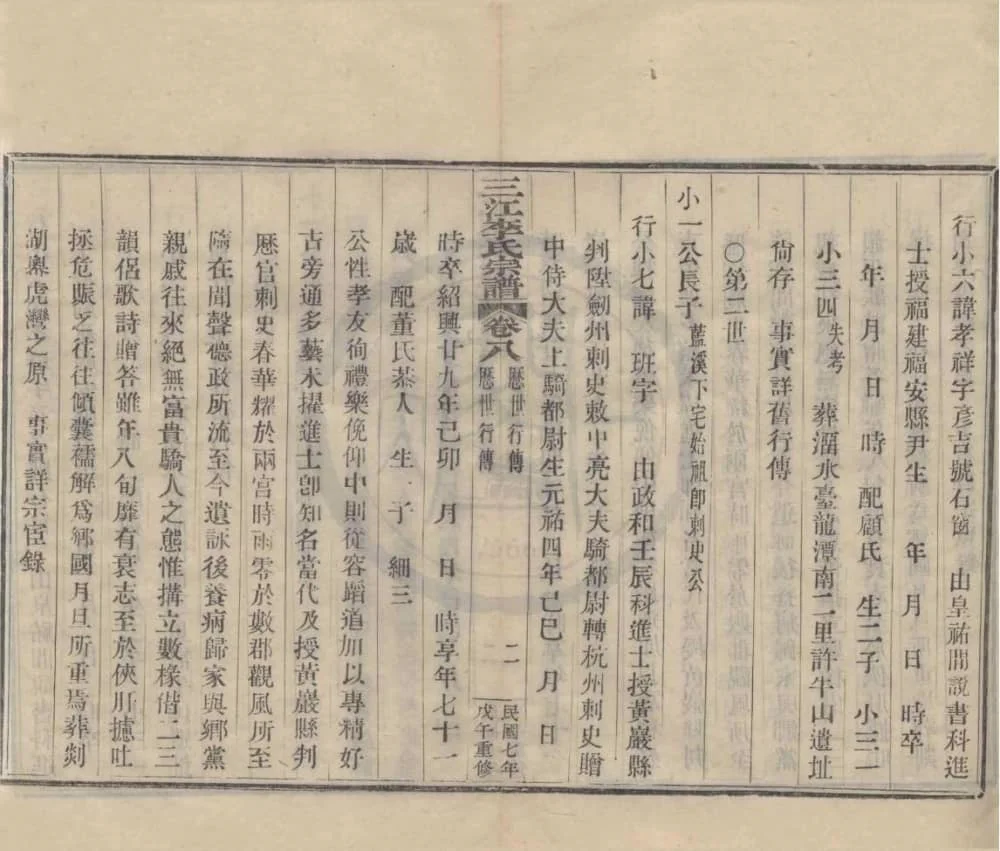 行小六諱孝祥字彥吉號石窗　由皇祐閒說書科進
士授福建福安縣尹生　年　月　日　時卒
年　月　日　時　配顧氏　生二子　小三一
小三四失考　葬溜水臺龍潭南二里許牛山遺址
尙存　事實詳舊行傳
〇第二世
小一公長子藍溪下宅始祖卽刺史公
行小七諱　班字　由政和壬辰科進士授黃巖縣
判陞劒州刺史敕中亮大夫騎都尉轉杭州刺史贈
中侍大夫上騎都尉生元祐四年己巳　月　日
三江李氏宗譜　卷八　歷世行傳　歷世行傳　二　民國七年戊午重修
時卒紹興廿九年己卯　月　日　時享年七十一
歲　配董氏恭人　生一子　細三
公性孝友徇禮樂俛仰中則從容蹈道加以專精好
古旁通多藝未擢進士卽知名當代及授黃巖縣判
歷官刺史春華耀於兩宫時雨零於數郡觀風所至
隨在聞聲德政所流至今遺詠後養病歸家與鄉黨
親戚往來絕無富貴驕人之態惟搆立數椽偕二三
韻侶歌詩贈答雖年八旬靡有衰志至於俠肝攄吐
拯危賑乏往往傾囊襦解爲鄉國月旦所重焉葬剡
湖奧虎灣之原　事實詳宗宦錄